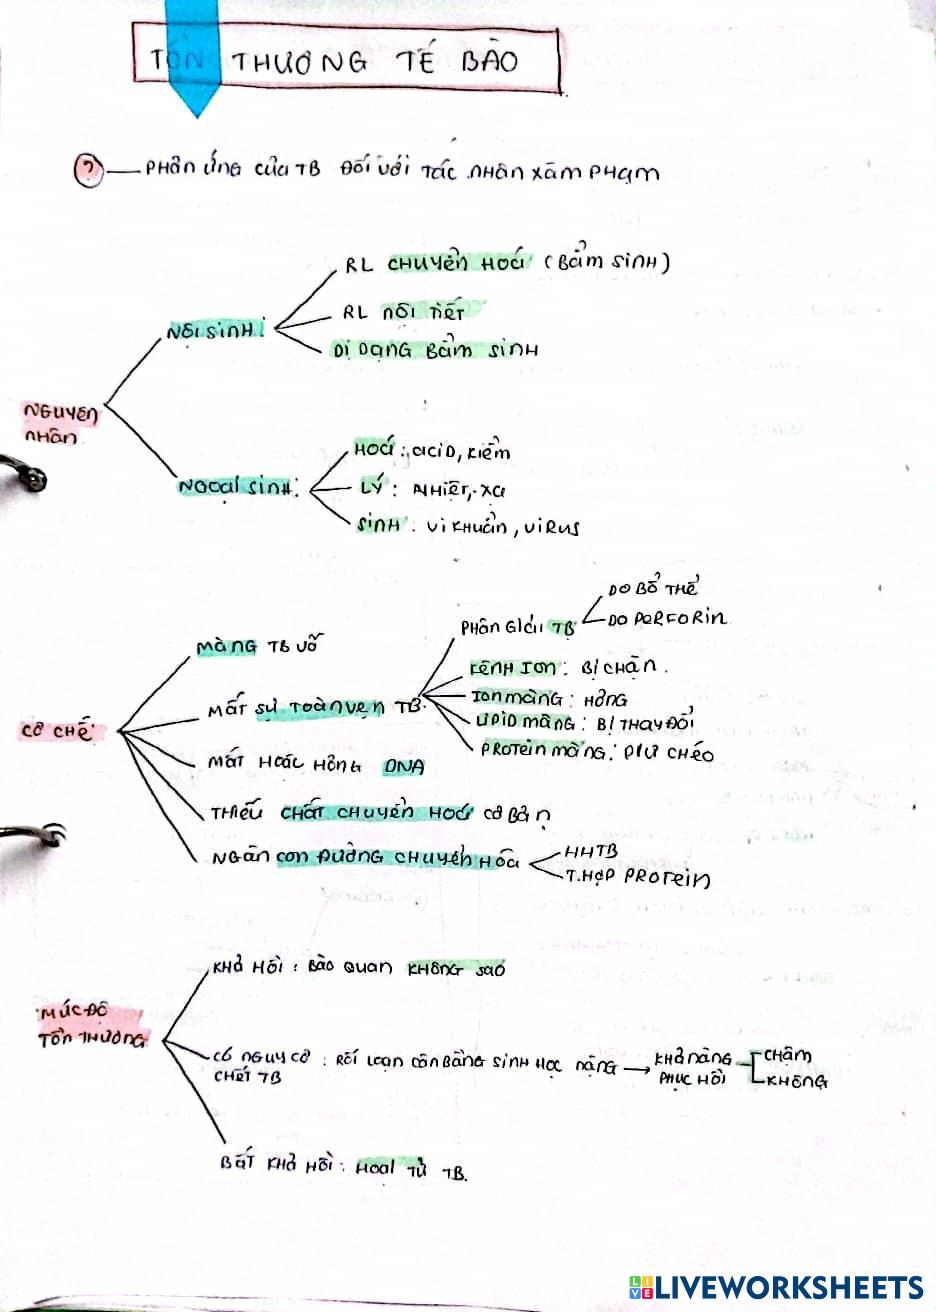 TỔN THƯƠNG TẾ BÀO
? — PHẢN ỨNG CỦA TB ĐỐI VỚI TÁC NHÂN XÂM PHẠM
NGUYÊN NHÂN
NỘI SINH:
RL CHUYỂN HOÁ (BẨM SINH)
RL NỘI TIẾT
DỊ DẠNG BẨM SINH
NGOẠI SINH:
HOÁ: ACID, KIỀM
LÝ: NHIỆT, XẠ
SINH: VI KHUẨN, VIRUS
CƠ CHẾ
MÀNG TB VỠ
MẤT SỰ TOÀN VẸN TB
PHÂN GIẢI TB
DO BỔ THỂ
DO PERFORIN
KÊNH ION: BỊ CHẶN.
ION MÀNG: HỎNG
LIPID MÀNG: BỊ THAY ĐỔI
PROTEIN MÀNG: PƯ CHÉO
MẤT HOẶC HỎNG DNA
THIẾU CHẤT CHUYỂN HOÁ CƠ BẢN
NGĂN CON ĐƯỜNG CHUYỂN HÓA
HHTB
T.HỢP PROTEIN
MỨC ĐỘ
TỔN THƯƠNG
KHẢ HỒI: BÀO QUAN KHÔNG SAO
CÓ NGUY CƠ
CHẾT TB
: RỐI LOẠN CÂN BẰNG SINH HỌC NẶNG →
KHẢ NĂNG
PHỤC HỒI
CHẬM
KHÔNG
BẤT KHẢ HỒI: HOẠI TỬ TB.
LIVEWORKSHEETS